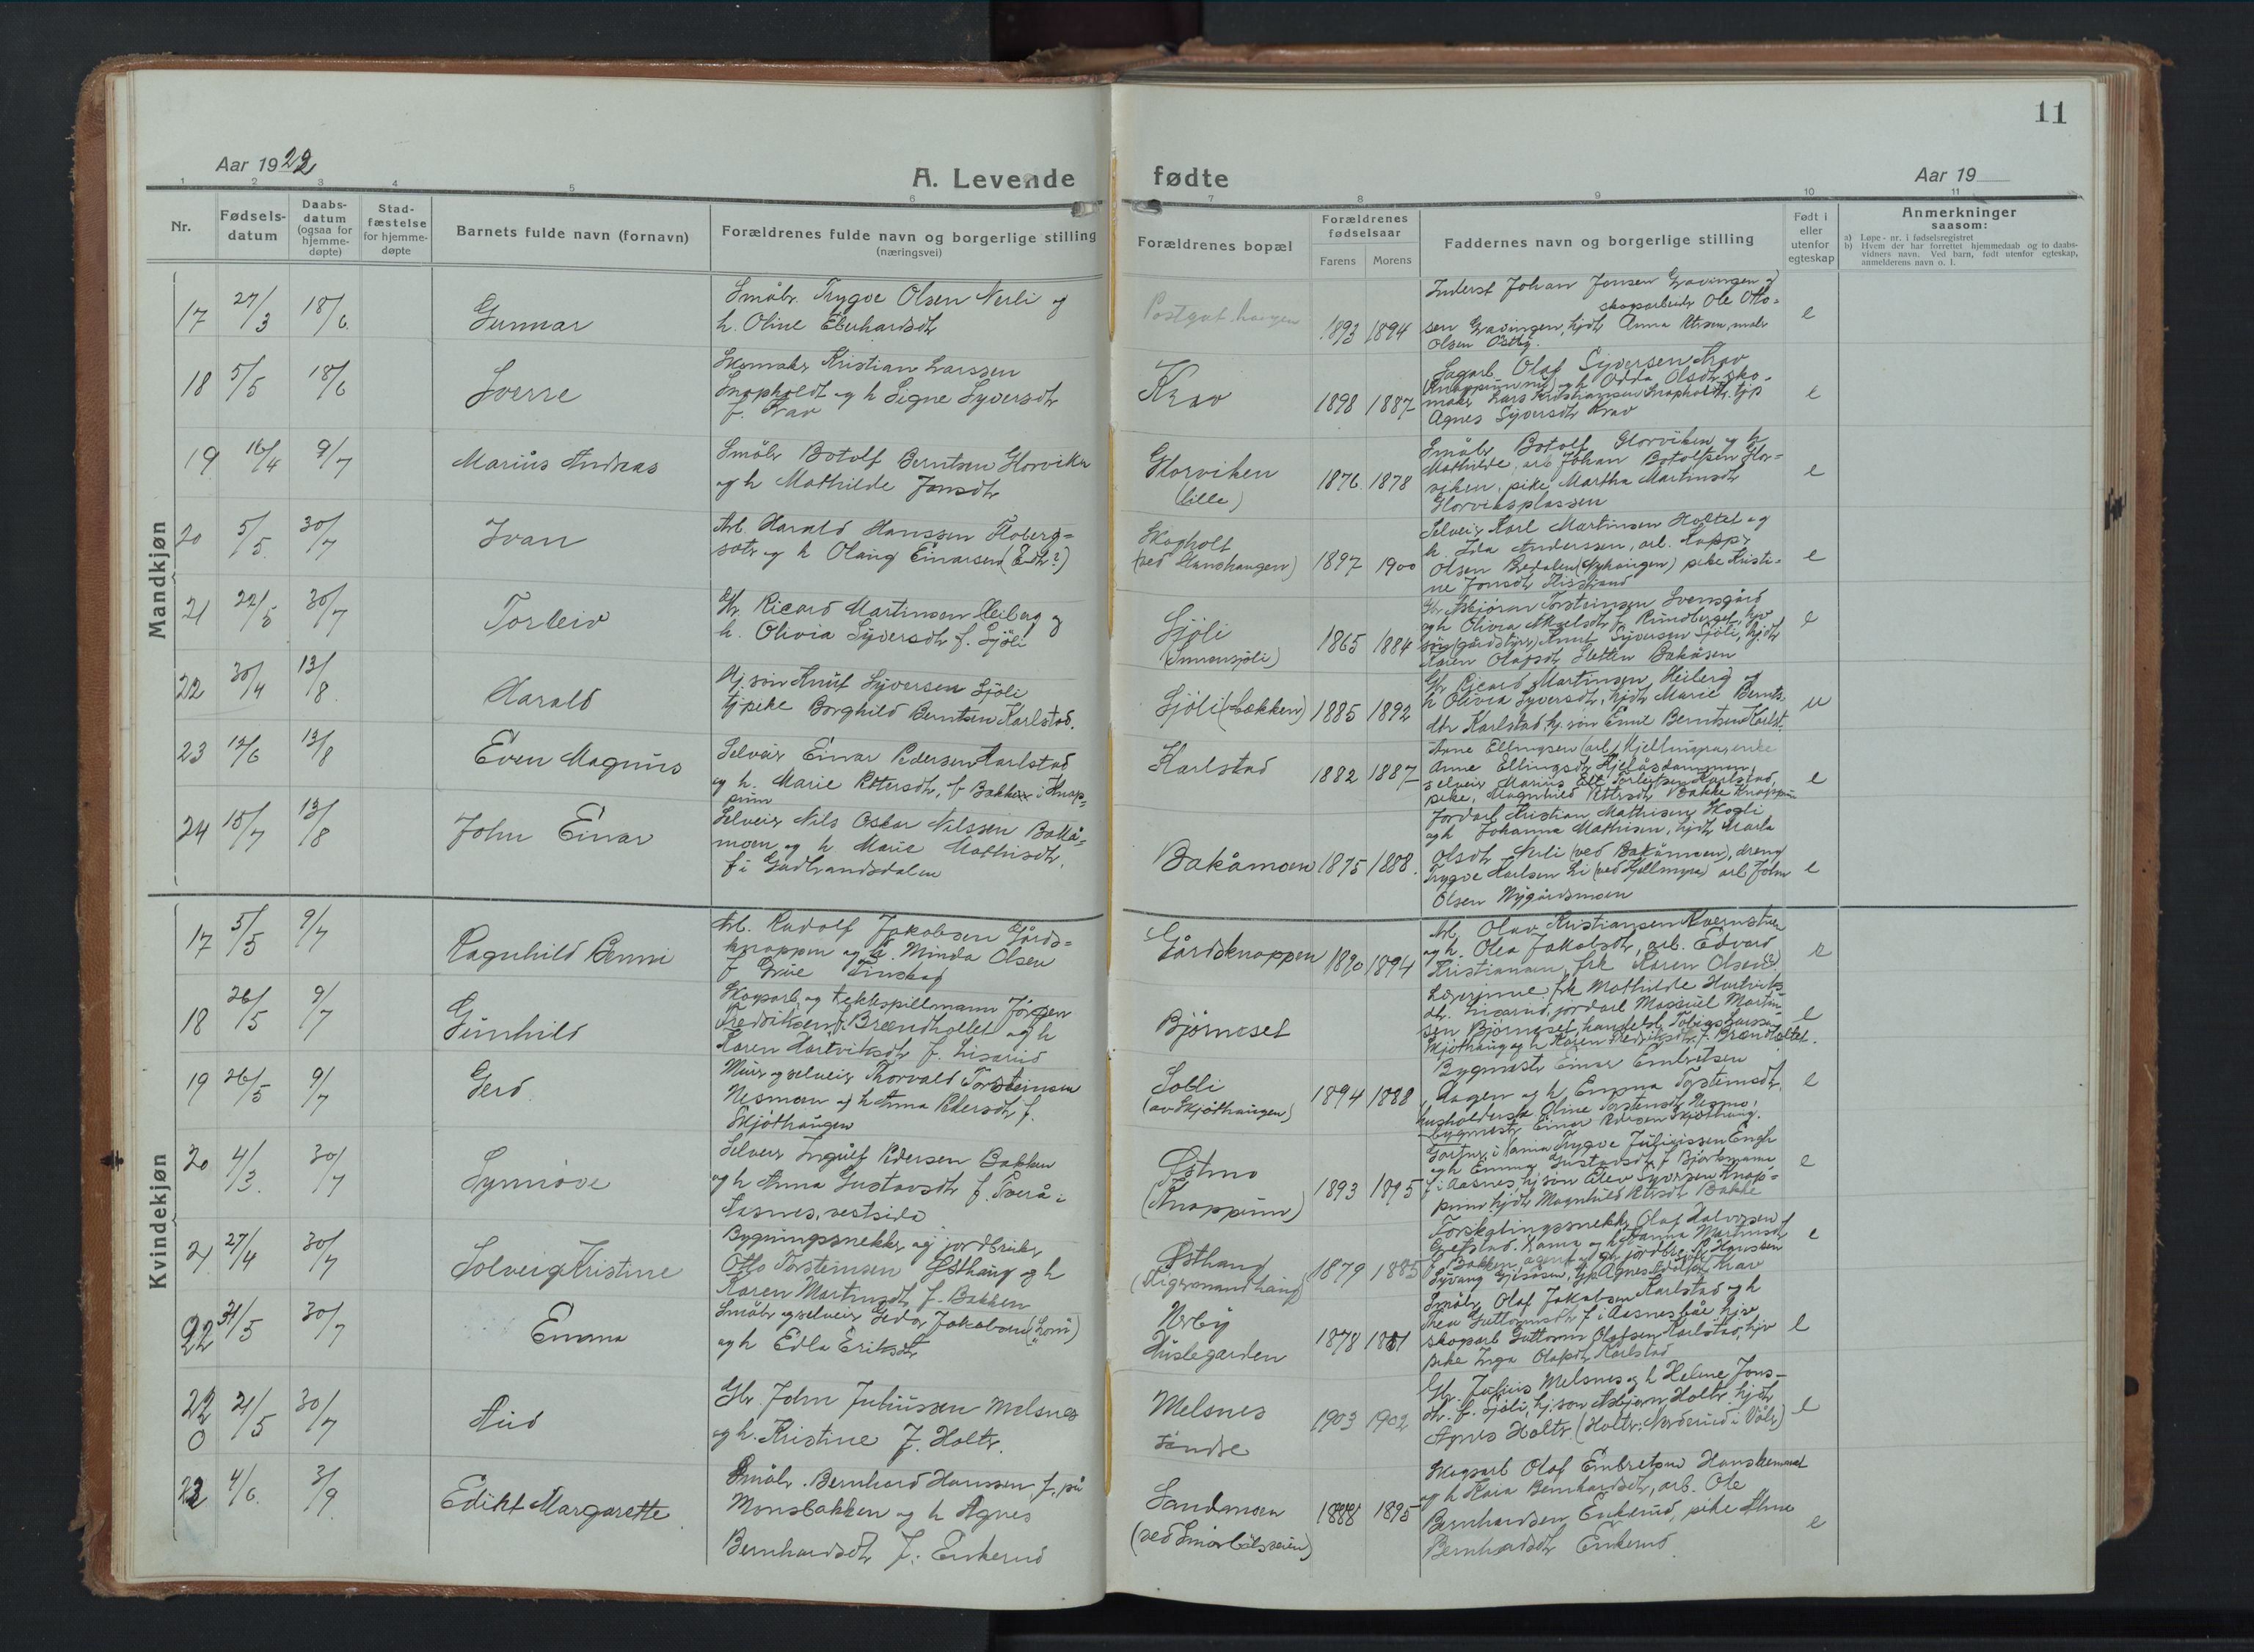 11
Aar 1922
A. Levende fødte
Aar 19
1 2 3 4 5 6 7 8 9 10 11
Nr.
Fødsels-
datum
Daabs-
datum
(ogsaa for
hjemme-
døpte)
Stad-
fæstelse
for hjemme-
døpte
Barnets fulde navn (fornavn)
Forældrenes fulde navn og borgerlige stilling
(næringsvei)
Forældrenes bopæl
Forældrenes
fødselsaar
Farens Morens
Faddernes navn og borgerlige stilling
Født i
eller
utenfor
egteskap
Anmerkninger
saasom:
a) Løpe-nr. i fødselsregistret
b) Hvem der har forrettet hjemmedaab og to daabs-
vidners navn. Ved barn, født utenfor egteskap,
anmelderens navn o. l.
Mandkjøn
17 27/3 18/6 Gunnar
Småbr. Trygve Olsen Nerli og
h. Oline Eberhardsdtr
1893 1894
Inderst Johan Jonsen Gravingen og
skogsarbeider Ole Otto-
sen Gravingen, hjdtr Anna Olsen, maler
Olsen Østby.
e
18 5/5 18/6 Sverre
Skomaker Kristian Larssen
Snapholdt og h Signe Syversdtr
f. Krav
Krav
1898 1887
Sagarb. Olaf Syversen Krav
(Knappum) og h Odda Olsdtr, sko-
maker Lars Kristiansen Snapholdt, tjp
Agnes Syversdtr Krav
e
19 16/4 9/7 Marius Andreas
Småbr Botolf Berntsen Glorviken
og h Mathilde Jonsdtr
Glorviken
(lille)
1876 1878
Småbr Botolf Glorviken og h
Mathilde, arb Johan Botolfsen Glor-
viken, pike Martha Martinsdtr
Glorviksplassen
e
20 5/5 30/7 Ivan
Arb. Harald Hanssen Floberg-
sætr og h Olaug Einarsen (Edtr?)
Skogholt
(ved Handhaugen)
1897 1900
Selveir Karl Martinsen Holtet og
h. Ida Anderssen, arb. Kapp.
Olsen Bredalen (Nyhaugen) pike Kristi-
ne Jonsdtr
e
21 22/5 30/7 Torleiv
Gbr Ricard Martinsen Heiberg og
h. Olivia Syversdtr f. Sjöli
Sjöli
1865 1884
Gbr Asbjörn Torsteinsen Svensgård
og h Olivia Akselsdtr f. Rundberget,
(gårdstyr) Knut Syversen Sjöli, hjdtr
Karen Olafsdtr Sletten Bakåsen
e
22 30/4 13/8 Harald
Hj. søn Knut Syversen Sjöli
tjpike Borghild Berntsen Karlstad.
Sjöli (Bækken)
1885 1892
Gbr Ricard Martinsen Heiberg og
h Olivia Syversdtr, hjdtr Marie Bernts-
dtr Karlstad, hj. søn Emil Berntsen Karlst.
u
23 12/6 13/8 Even Magnus
Selveir Einar Pedersen Karlstad
og h. Marie Pettersdtr, f Bakken i Knap-
pum
Karlstad
1882 1887
Anne Ellingsdtr
selveir Marius Torleifsen Karlstad,
pike, Magnhild Pettersdtr Bakke Knappum
e
24 15/7 13/8 John Einar
Selveir Nils Oskar Nilssen Bakkå-
moen og h. Marie Mathisdtr,
f i Gudbrandsdalen
Bakåmoen
1875 1888.
Jordarb Kristian Mathisen Skogli
og h Johanna Mathisen, hjdtr Marta
Olsdtr Nerli (ved Bakåmoen), dreng
Trygve Karlsen Li (ved Kjellmyra) arb John
Olsen Nygårdsmoen
e
Kvindekjøn
17 5/5 9/7 Ragnhild Benni
Arb. Rudolf Jakobsen Gårds-
knappen og h. Minda Olsen
f Grue Finskog
Gårdsknappen
1890 1894
Arb. Olav Kristiansen Kvernstuen
og h. Olea Jakobsdtr, arb. Edvard
Kristiansen, frk Karen Olsen
e
18 26/5 9/7 Gunhild
Skogsarb og tekkspillmann Jörgen
Fredriksen f. Brændholtet og h
Karen Hartviksdtr f. Lisarud
Björneset
Lærerinne frk Mathilde Hartviks-
dtr. Lisarud, jordarb Magnus Martin-
sen Björneset, handelsb. Tobias Larssen
Skjöthaug og h Karen Fredriksdtr f. Brændholtet.
e
19 26/5 9/7 Gerd.
Murer og selveir Thorvald Torsteinsen
Nesmoen og h Anna Pedersdtr f.
Skjöthaugen
Solli
(av Skjöthaugen)
1894 1888
Bygmestr Einar Embretsen
Haagen og h Emma Torsteinsdtr,
husholderske Oline Torsteinsdtr Nesmo,
bygmestr Einar Pedersen Skjöthaug.
e
20 4/3. 30/7 Synnöve
Selveir Ingulf Pedersen Bakken
og h Anna Gustavsdtr f. Tverå i
Aasnes, vestsida
Østmo
(Knappum)
1893 1895
Gartner i Vania Trygve Juliussen Engh
og h Emma Gustavsdtr f Björkmann
f i Aasnes, hj søn Olav Syversen Knap-
pum, hjdtr Magnhild Pettersdtr Bakke
e
21 27/4 30/7 Solveig Kristine
Bygningssnekker og jordbruker
Otto Torsteinsen Østhaug og h
Karen Martinsdtr f. Bakken
Østhaug
1879 1885
Forskalingssnekker Olaf Halvorsen
e
22 31/5 30/7 Emma
Småbr og selveir Gedor Jakobsen
og h Edla Eriksdtr
Nerby
Huslegarden
1878 1881
Småbr Olaf Jakobsen Karlstad og h
Thea Guttormsdtr f i Aasnes
skogsarb Guttorm Olafsen Karlstad, hjv
pike Inga Olafsdtr Karlstad
e
22 0 21/5 30/7 Aud
Gbr. John Juliussen Melsnes
og h. Kristine f. Holtr.
Melsnes
søndre
1903 1902
Gbr. Julius Melsnes og h Helene Jons-
dtr. f. Sjöli, hj.søn Asbjörn Holtr, hjdtr
Agnes Holtr (Holtr: Norderud i Våler)
e
23 4/6. 3/9. Edikt Margarette.
Småbr. Bernhard Hanssen f. på
Monsbakken og h Agnes
Bernhardsdtr f. Enkerud
Sandmoen
1888 1895
Skogsarb Olaf Embretsen Hanskemoet
og h Kaia Bernhardsdtr, arb. Ole
Bernhardsen Enkerud, pike Alma
Bernhardsdtr Enkerud.
e